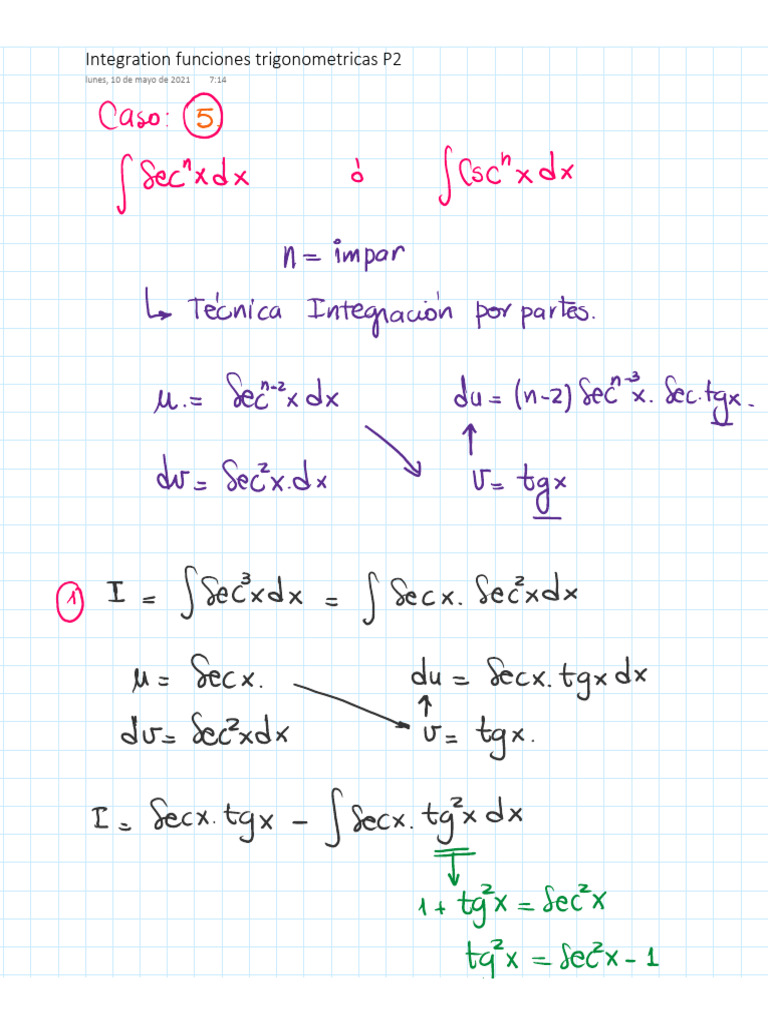 Integration funciones trigonometricas P2
lunes, 10 de mayo de 2021 7:14
Caso: 5
∫ Secⁿx dx ó ∫ Cscⁿ x dx
n = impar
↳ Técnica Integración por partes.
μ. = Secⁿ⁻² x dx du = (n-2) Secⁿ⁻³ x. Sec.tgx.
dv = Sec²x.dx v = tgx
1 I = ∫ Sec³x dx = ∫ Secx. Sec²x dx
μ = Secx. du = Secx. tgx dx
dv = Sec²x dx v = tgx.
I = Secx. tgx - ∫ Secx. tg²x dx
1 + tg²x = Sec²x
tg²x = Sec²x - 1